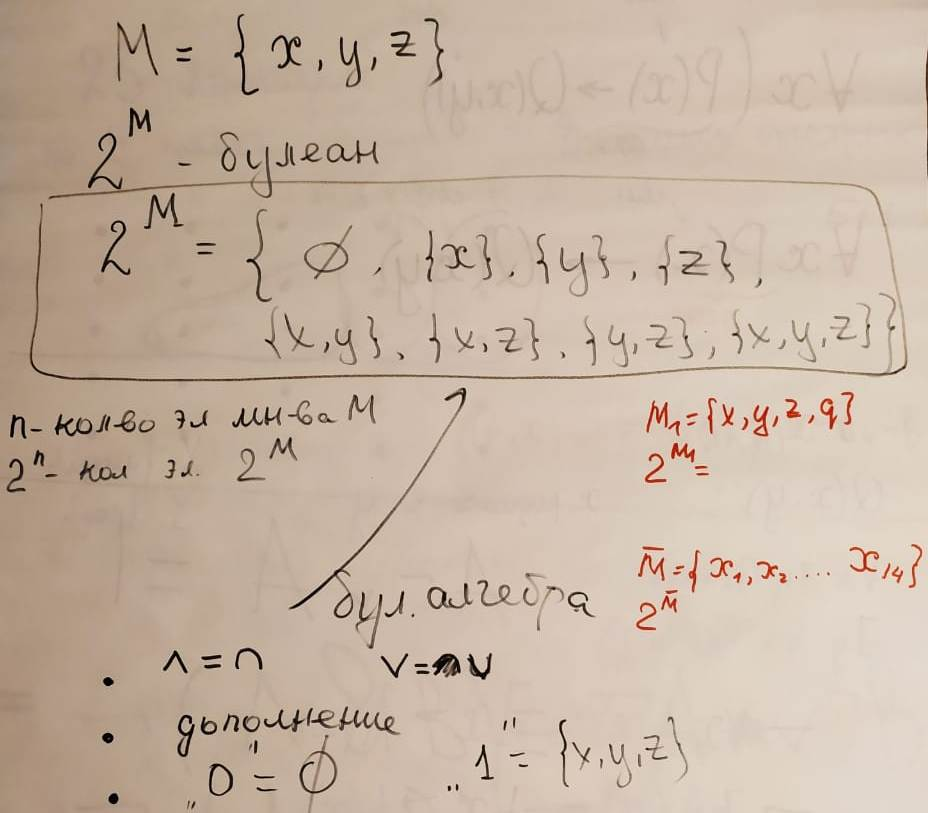 M = {x, y, z}
2^M - булеан
2^M = { ∅, {x}, {y}, {z},
{x, y}, {x, z}, {y, z}; {x, y, z}}
n - кол-во эл мн-ва M
2^n - кол эл. 2^M
M₁ = {x, y, z, q}
2^M₁ =
M̄ = { x₁, x₂ .... x₁₄}
2^M̄
бул. алгебра
• ∧ = ∩ ∨ = ∪
• дополнение
• „0" = ∅ „1" = {x, y, z}